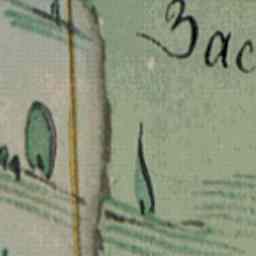 Зас